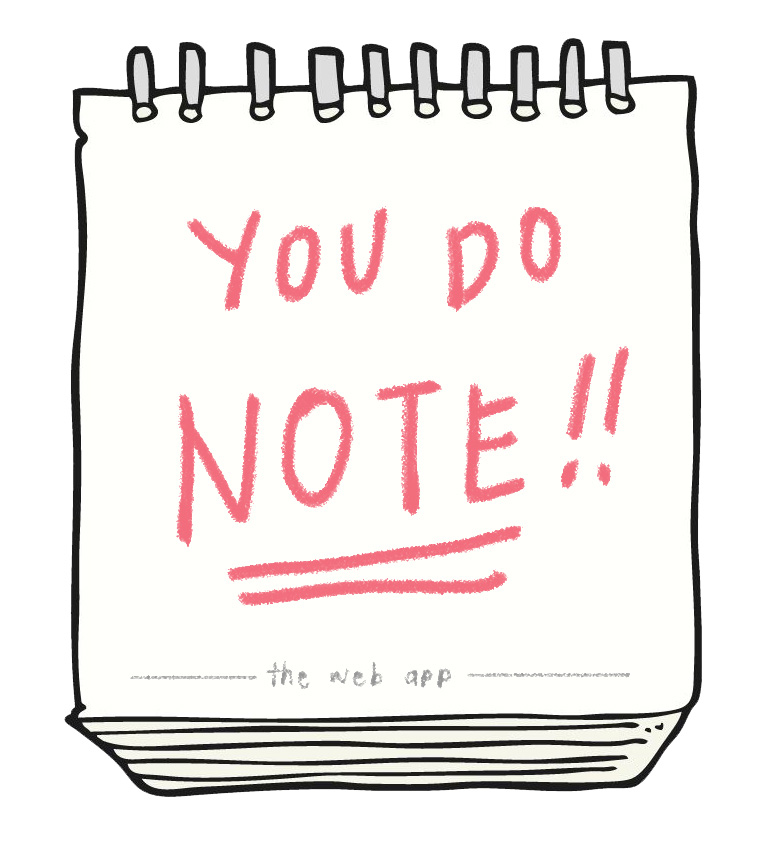 YOU DO
NOTE!!
the web app